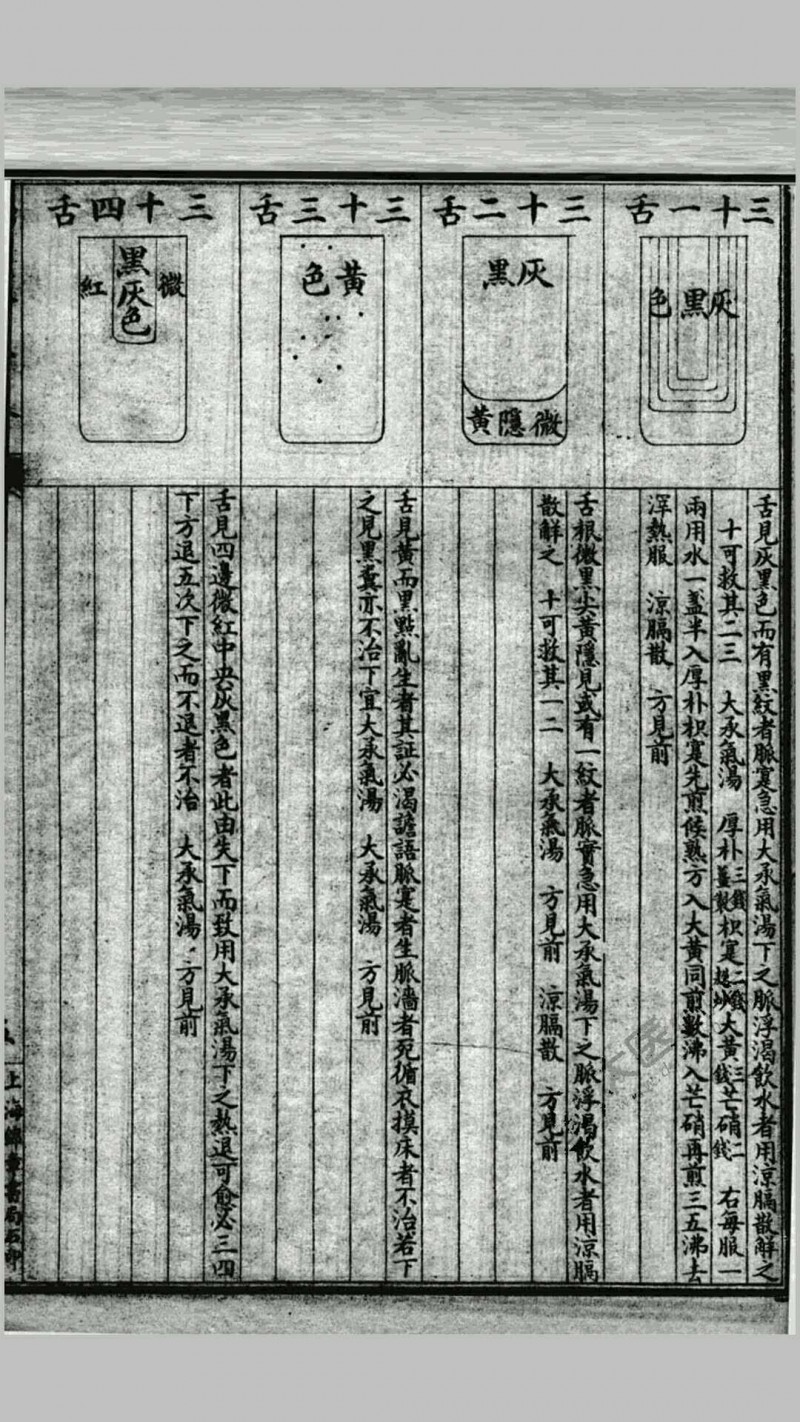 三十一舌
灰黑色
舌見灰黑色而有黑紋者脈寔急用大承氣湯下之脈浮渴飲水者用涼膈散解之
十可救其二三　大承氣湯　厚朴三錢薑製枳寔二錢麸炒大黃三錢芒硝二錢　右每服一
兩用水一盞半入厚朴枳寔先煎候熟方入大黃同煎數沸入芒硝再煎三五沸去
滓熱服　涼膈散　方見前
三十二舌
灰黑
微隱黃
舌根微黑尖黃隱見或有一紋者脈實急用大承氣湯下之脈浮渴飲水者用涼膈
散解之　十可救其一二　大承氣湯　方見前　涼膈散　方見前
三十三舌
黃色
舌見黃而黑點亂生者其証必渴譫語脈寔者生脈濇者死循衣摸床者不治若下
之見黑糞亦不治下宜大承氣湯　大承氣湯　方見前
三十四舌
微紅
黑灰色
舌見四邊微紅中央灰黑色者此由失下而致用大承氣湯下之熱退可愈必三四
下方退五次下之而不退者不治　大承氣湯　方見前
上海錦章書局石印